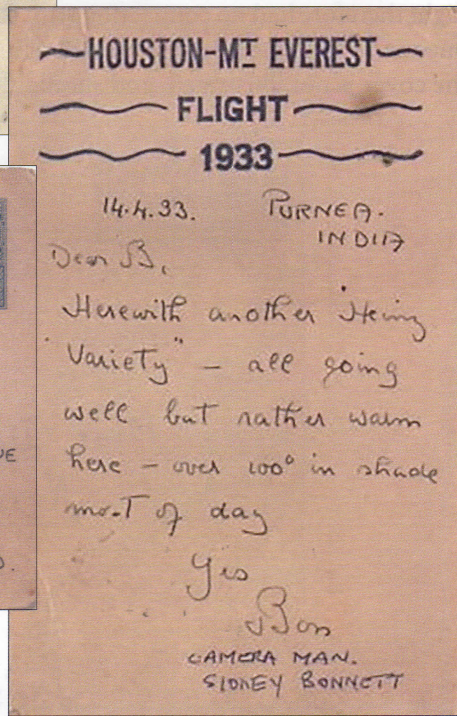 HOUSTON-MT EVEREST
FLIGHT
1933
14.4.33. PURNEA.
INDIA
Dear B,
Herewith another "Heinz
Variety" – all going
well but rather warm
here – over 100° in shade
most of day
Yrs
Bon
CAMERA MAN.
SIDNEY BONNETT